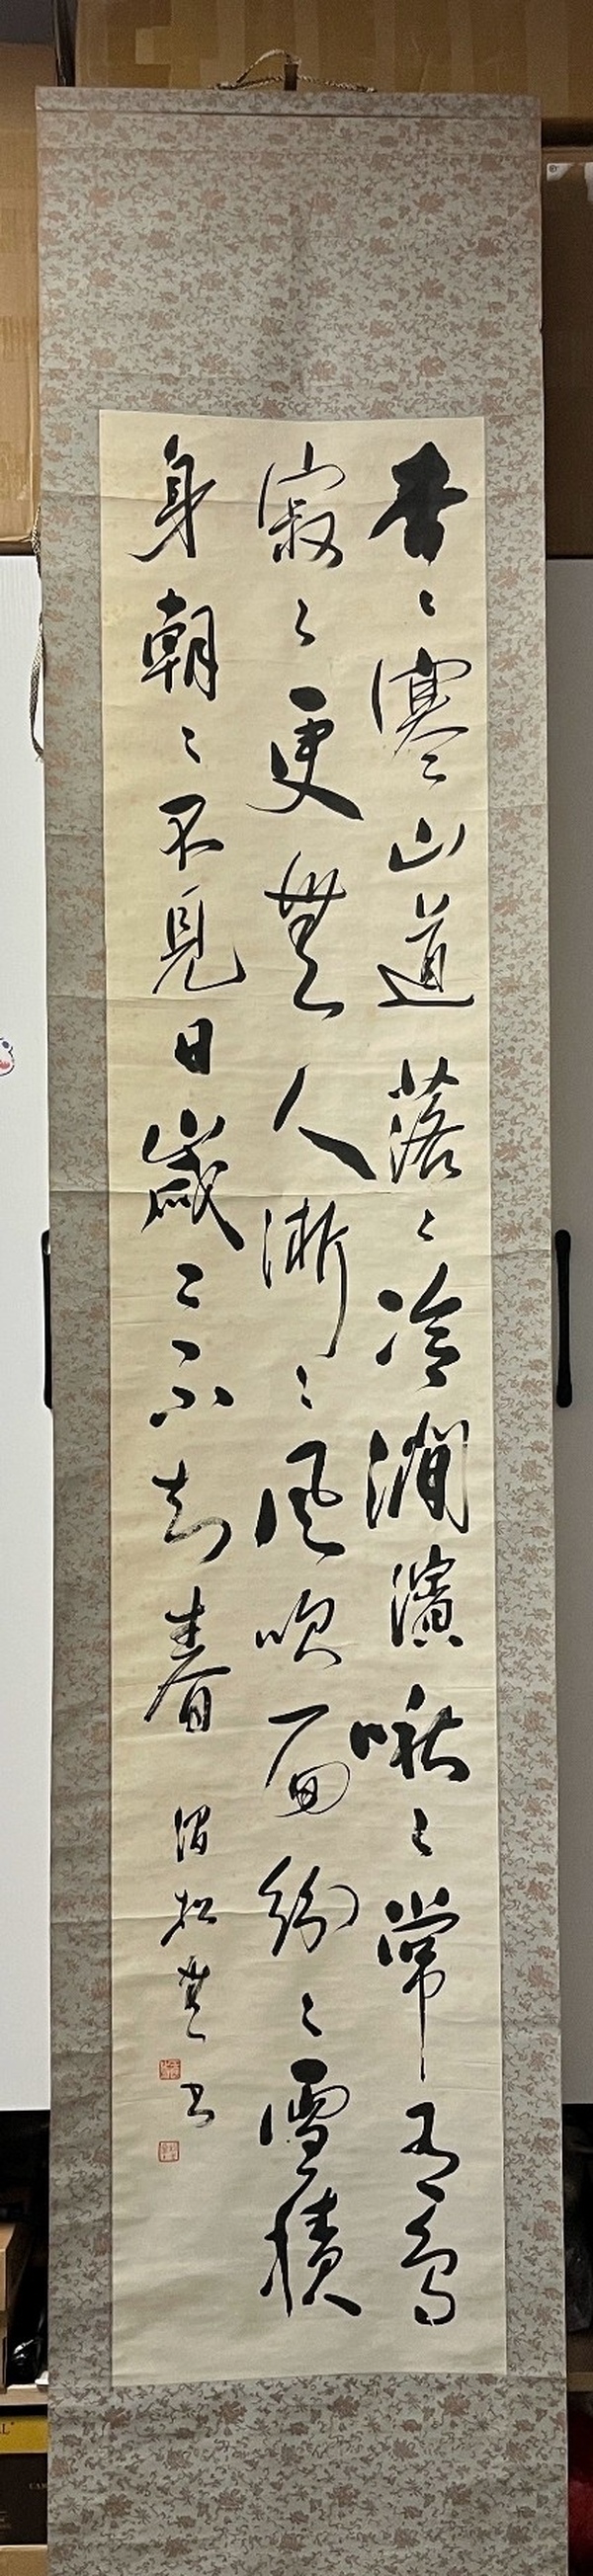 杳〻寒山道落〻冷澗濱啾〻常有鳥
寂〻更無人淅〻風吹面紛〻雪積
身朝〻不見日歲〻不知春
松 書